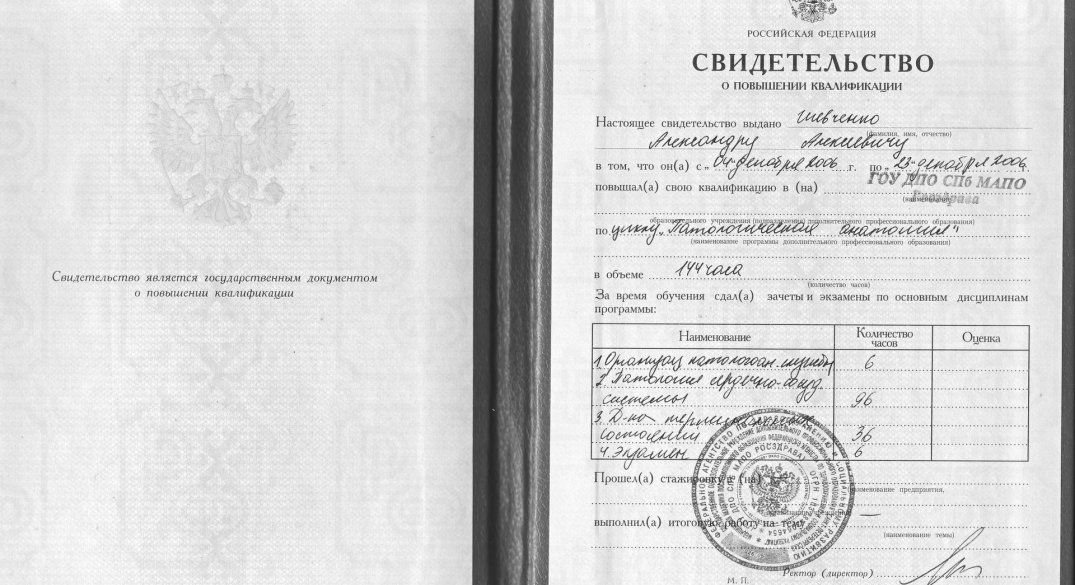 Свидетельство является государственным документом
о повышении квалификации
РОССИЙСКАЯ ФЕДЕРАЦИЯ
СВИДЕТЕЛЬСТВО
О ПОВЫШЕНИИ КВАЛИФИКАЦИИ
Настоящее свидетельство выдано Шевченко
(фамилия, имя, отчество)
Александру Алексеевичу
в том, что он(а) с „04" декабря 2006 г. по „23" декабря 2006 г.
повышал(а) свою квалификацию в (на) ГОУ ДПО СПб МАПО
Росздрава
(наименование
образовательного учреждения (подразделения) дополнительного профессионального образования)
по циклу „Патологическая анатомия"
(наименование программы дополнительного профессионального образования)
в объеме 144 часа
(количество часов)
За время обучения сдал(а) зачеты и экзамены по основным дисциплинам
программы:
Наименование Количество часов Оценка
1. патологоан. службы 6
2. Патология сердечно-сосуд.
системы 96
3. Д-ка терминальных
состояний 36
4. Экзамен 6
Прошел(а) стажировку в (на)
(наименование предприятия,
выполнил(а) итоговую работу на тему —
(наименование темы)
Ректор (директор)
М. П.